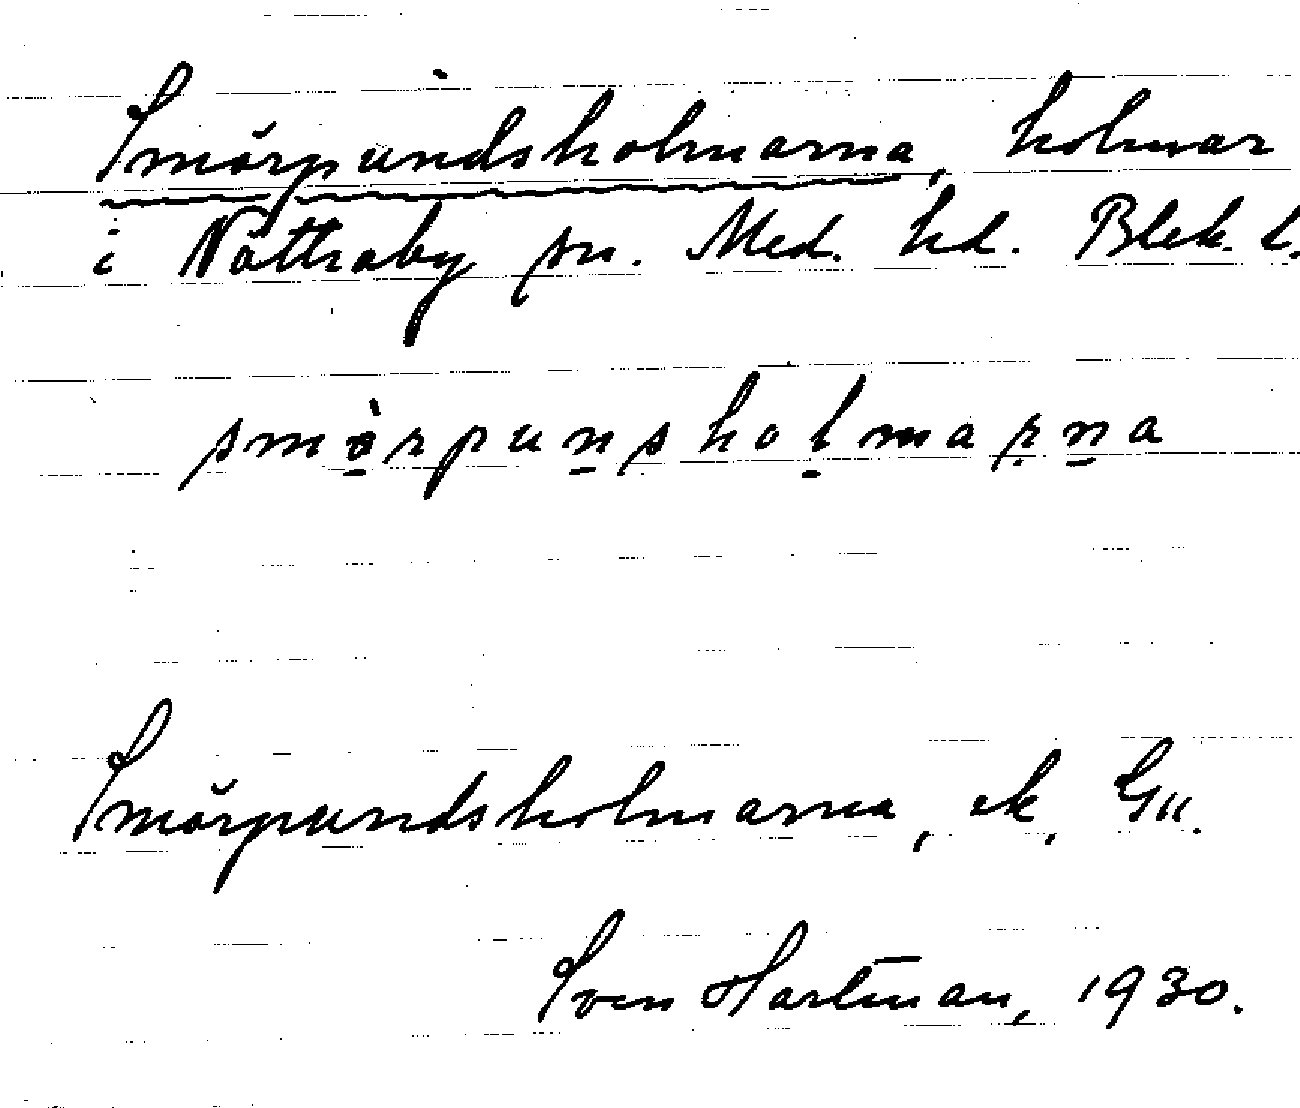 Smörpundsholmarna, holmar
i Nättraby sn. Med. hd. Blek. l.
smörpunsholmarna
Smörpundsholmarna, ek. Gu.
Sven Hartman, 1930.